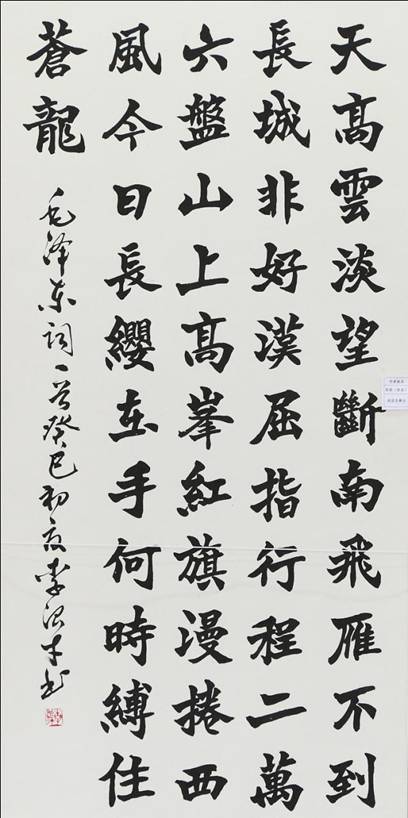 天高雲淡望斷南飛雁不到
長城非好漢屈指行程二萬
六盤山上高峯紅旗漫捲西
風今日長纓在手何時縛住
蒼龍
毛泽东词一首癸巳初夏李书